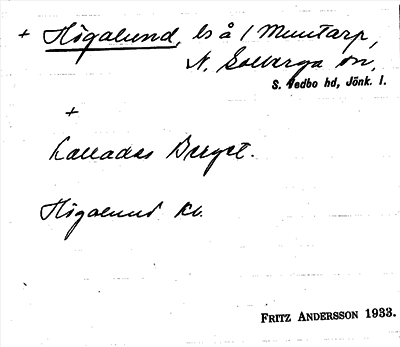 + Högalund, ls å / Muntarp,
N. Solberga sn,
S. Vedbo hd, Jönk. l.
+
Kallades Berget.
Högalund kb.
FRITZ ANDERSSON 1933.